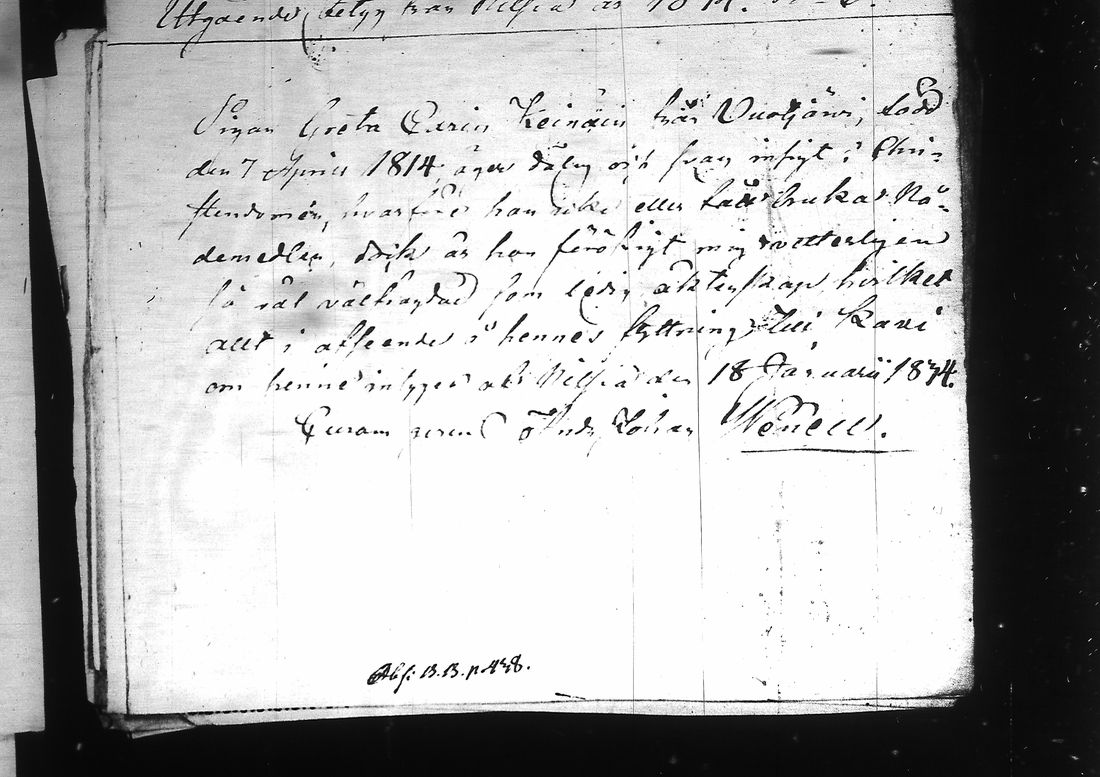 Utgående betyg från Nilsiä år 18
Pigan Greta Carin Keinäin från Vuotjärvi, född
den 7 April 1814, äger dålig och svag insigt i Chri-
stendomen, hvarföre hon icke eller har brukat Nå-
demedlen, dock är hon föröfrigt mig vetterligen
så väl välfrägdad som ledig äktenskap, hvilket
allt i afseende å hennes flyttning till Kavi
om henne intygas af Nilsiä den 18 Januarii 1834.
Curam gerens And. Johan Wenell.
Abs: B.B. p. 438.